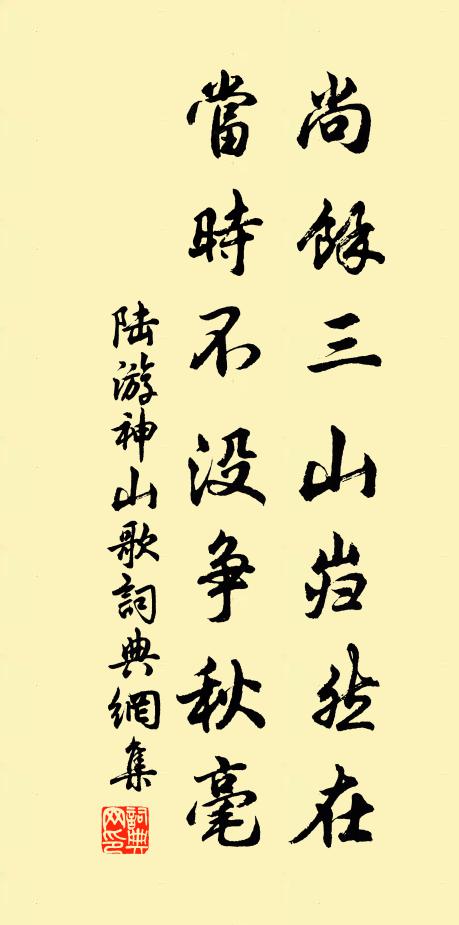 尚餘三山岿然在
當時不没争秋毫
陆游神山歌詞典網集
詞典网印